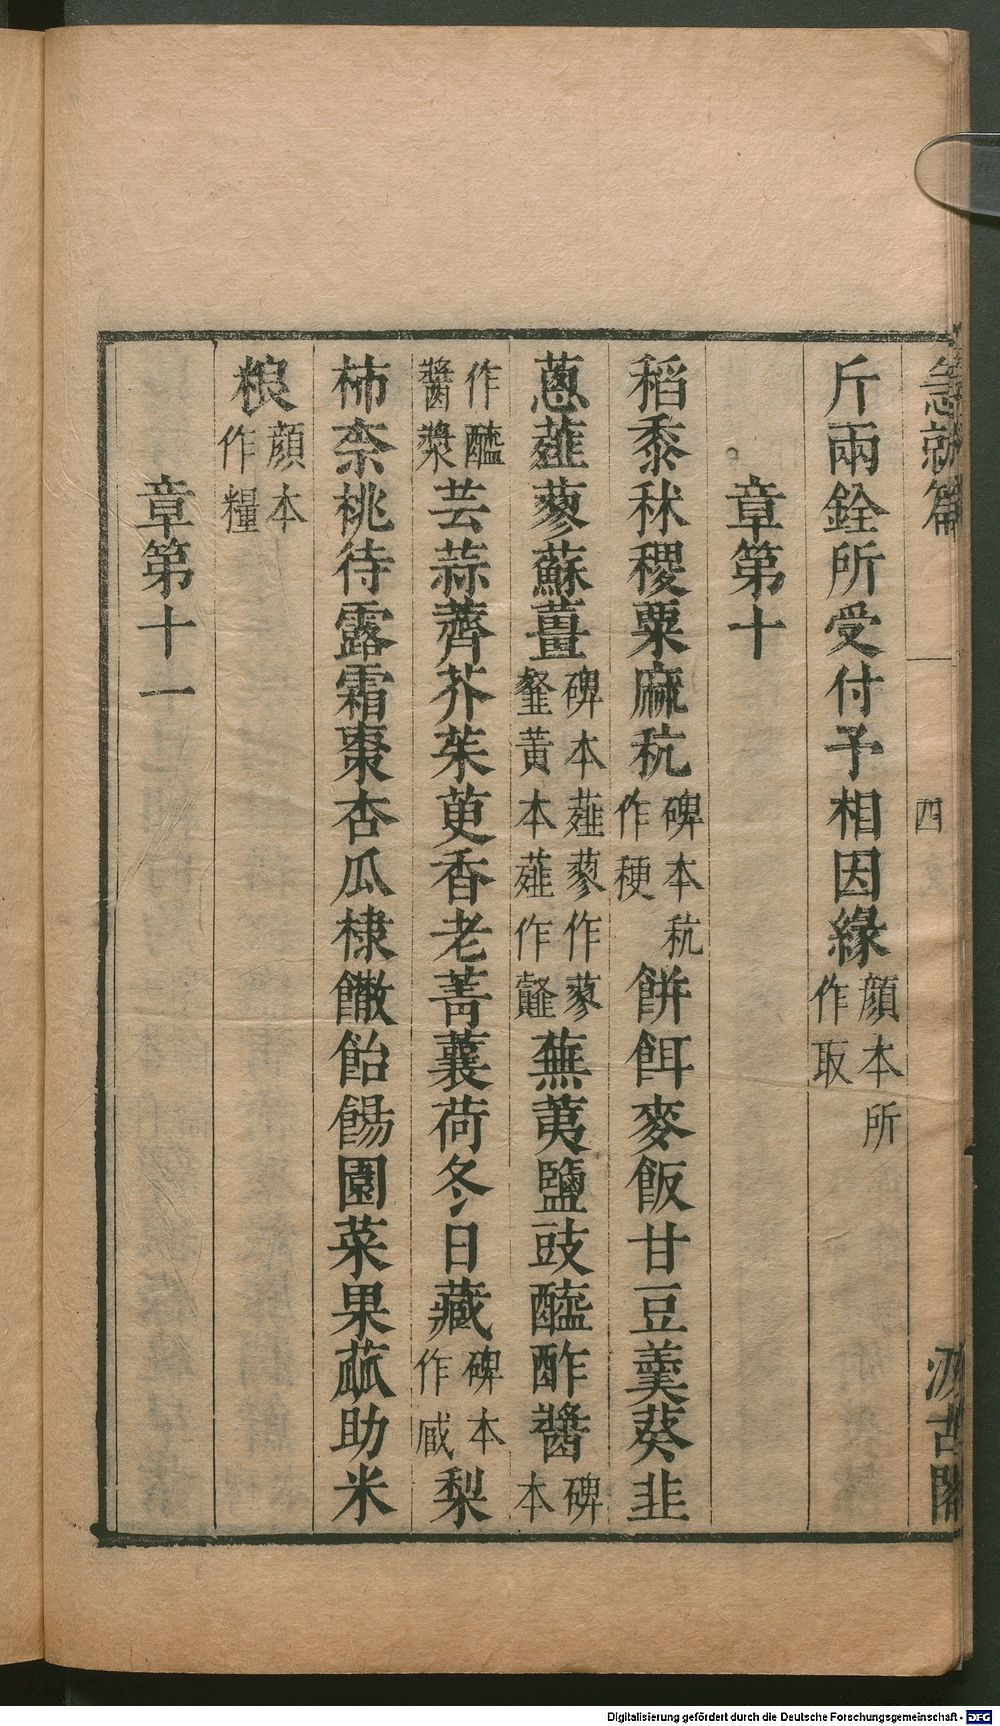 急就篇 四 汲古閣
斤兩銓所受付予相因緣顏本所作取
章第十
稻黍秫稷粟麻秔碑本秔作稉餅餌麥飯甘豆羹葵韭
蔥薤蓼蘇薑碑本薤蓼作蓼韰黃本薤作䪥蕪荑鹽豉醯酢醬碑本
作醯醬漿芸蒜薺芥茱萸香老菁蘘荷冬日藏碑本作臧梨
柿柰桃待露霜棗杏瓜棣饊飴餳園菜果蓏助米
粮顏本作糧
章第十一
Digitalisierung gefördert durch die Deutsche Forschungsgemeinschaft - DFG